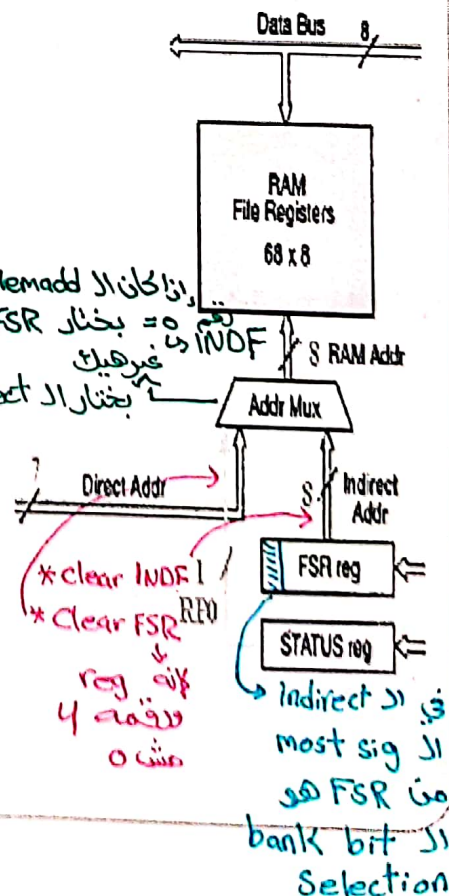 Data Bus 8
RAM
File Registers
68 x 8
اذا كان ال memadd
رقم 0 = بختار FSR
INDF
غير هيك
بختار ال
8 RAM Addr
Addr Mux
7
Direct Addr
8 Indirect
Addr
* clear INDF 1
RP0
* Clear FSR
FSR reg
STATUS reg
لانه reg
ورقمه 4
مش 0
في ال Indirect
ال most sig
من FSR هو
ال bank bit
Selection